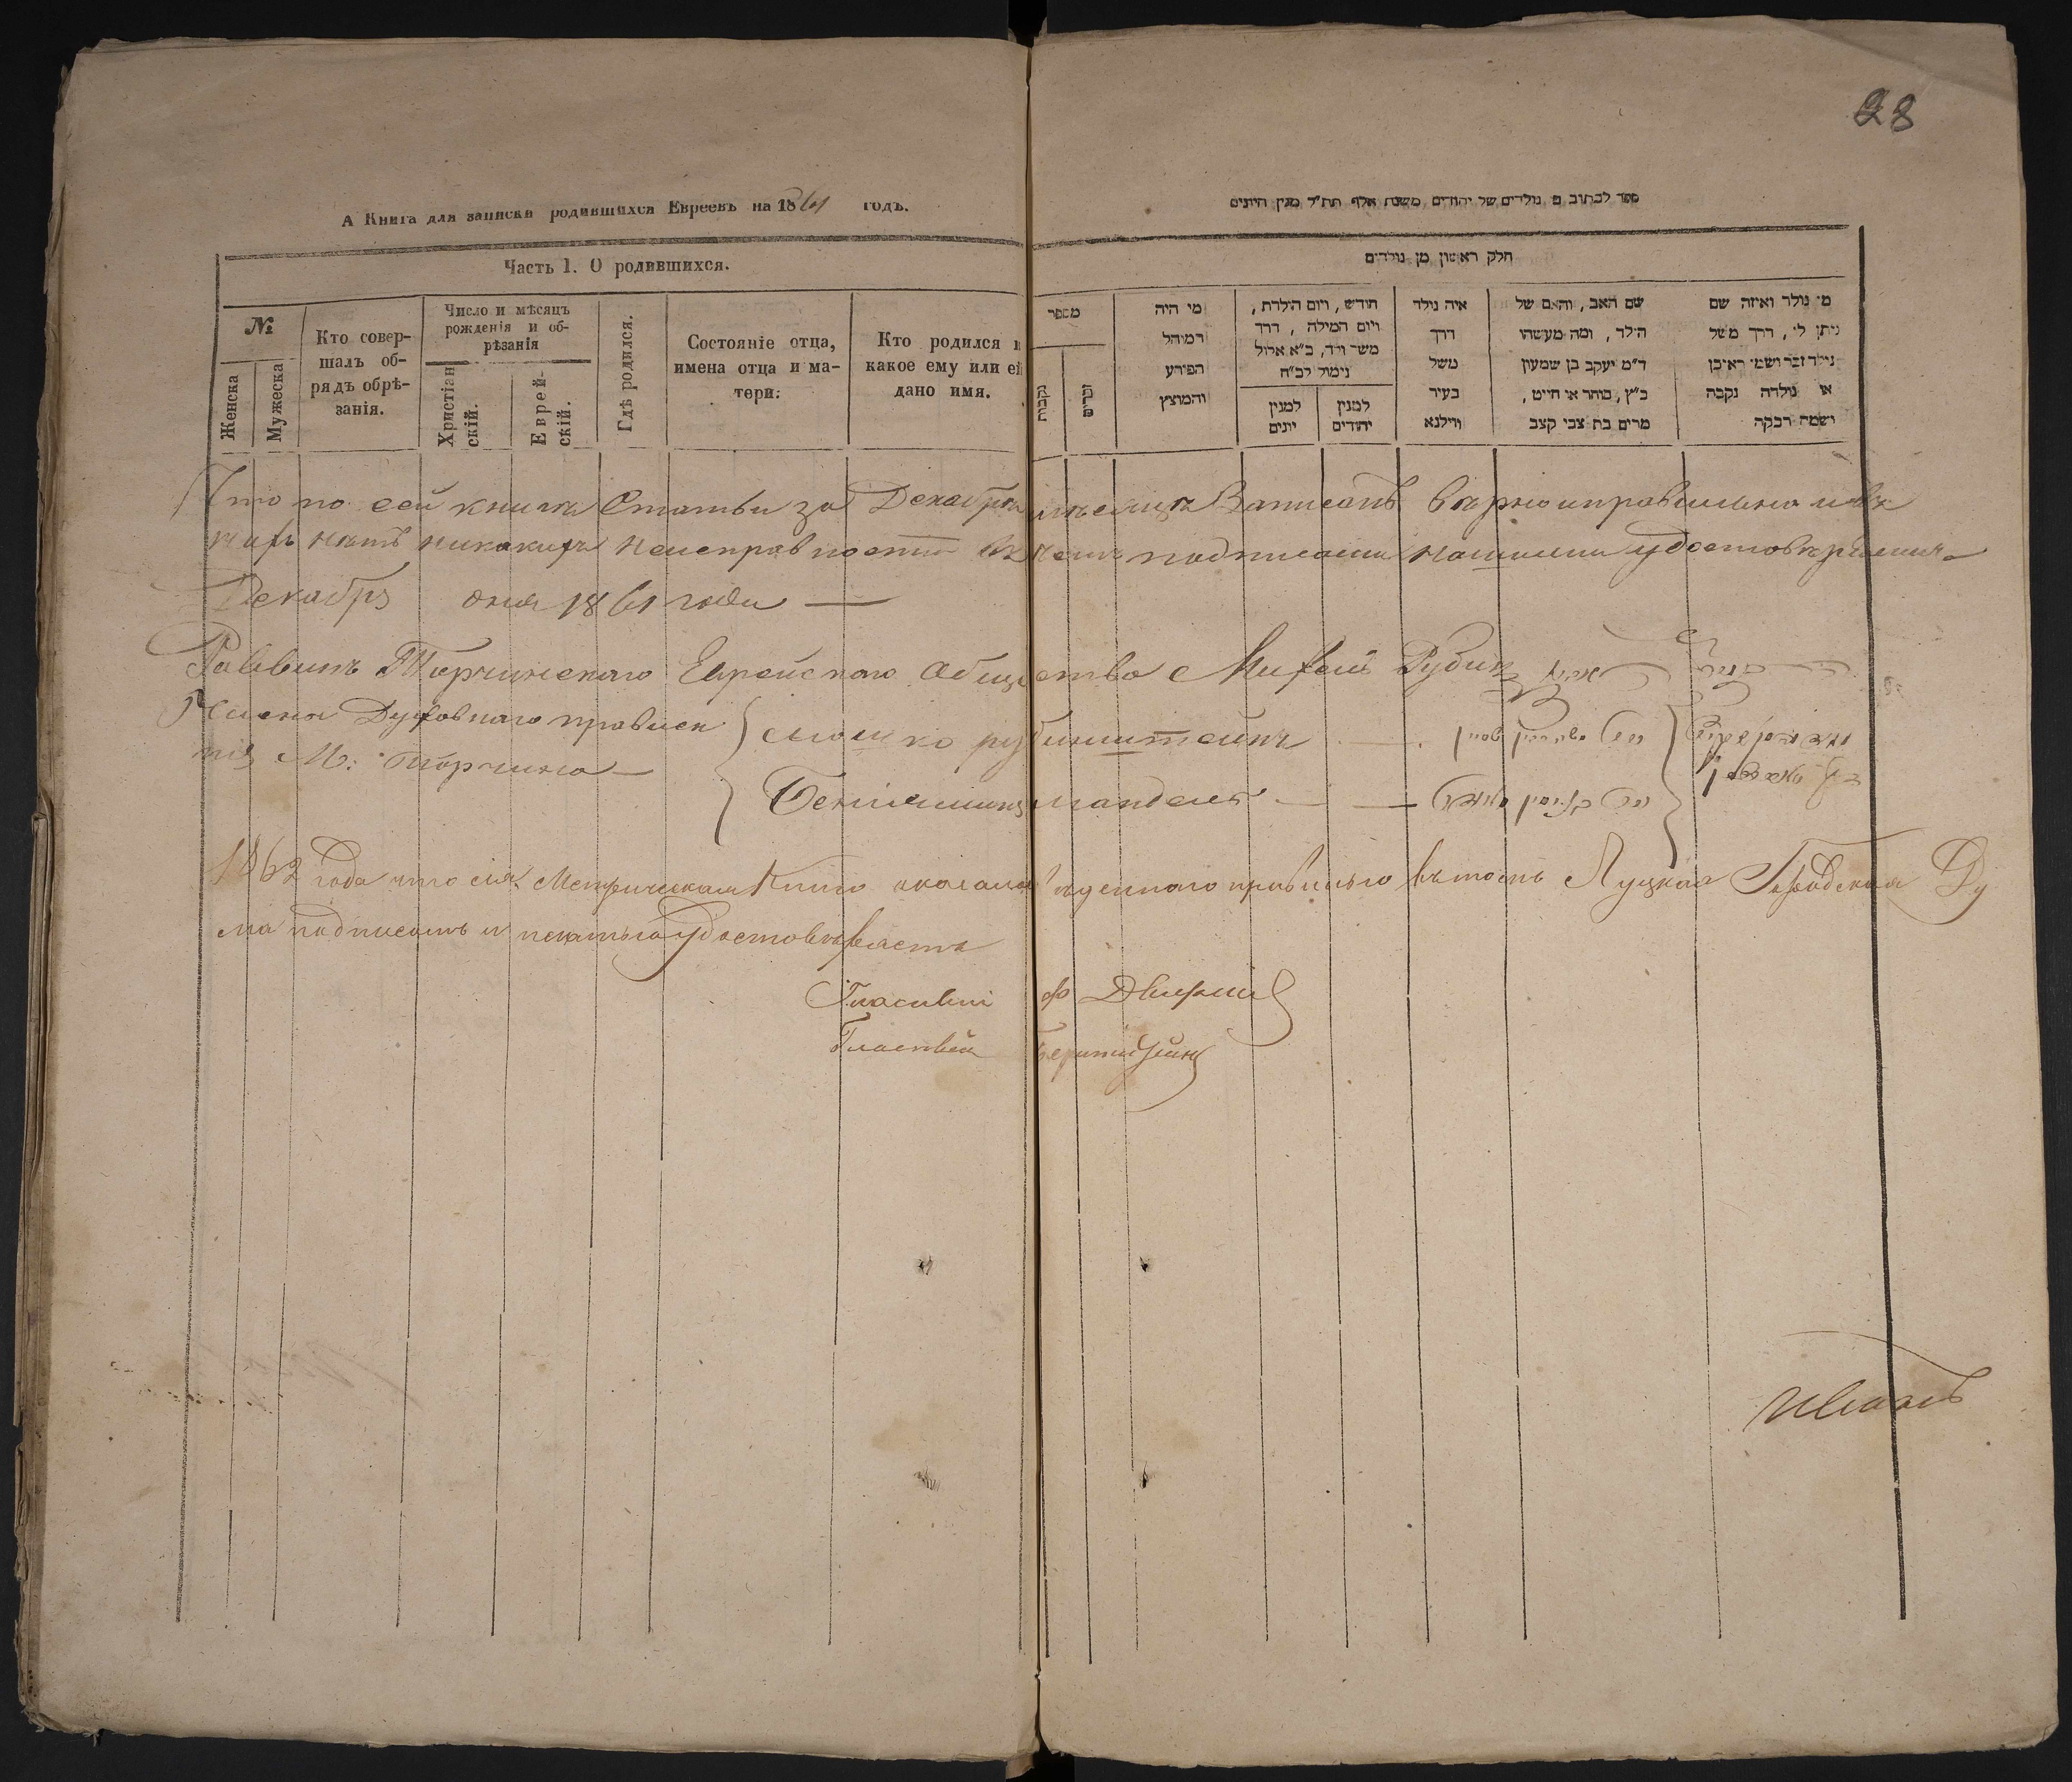 28
А Книга для записки родившихся Евреевъ на 1861 годъ.
ספר לכתוב מ נולדים של יהודים משנת אלף תת״ל מנין היונים
Часть 1. О родившихся.
חלק ראשון מן נולדים
№
Женска
Мужеска
Кто совер-
шалъ об-
рядъ обрѣ-
занія.
Число и мѣсяцъ
рожденія и об-
рѣзанія
Христіан
скій.
Еврей-
скій.
Гдѣ родился.
Состояніе отца,
имена отца и ма-
тери:
Кто родился и
какое ему или ей
дано имя.
מספר
נקבות
זכרים
מי היה
המוהל
הפורע
והמוצץ
חודש, ויום הולדת,
ויום המילה, דרך
משל נולד, כ״א אלול
נימול לב״ח
למנין
יונים
למנין
יהודים
איה נולד
דרך
משל
בעיר
ווילנא
שם האב, והאם של
הילד, ומה מעשהו
ד״מ יעקב בן שמעון
כ״ץ, סוחר או חייט,
מרים בת צבי קצב
מי נולד ואיזה שם
ניתן לו, דרך משל
נולד זכר ושמו ראובן
או נולדה נקבה
ושמה רבקה
Что по сей книгѣ Статьи за Декабрь мѣсяцъ Записанъ вѣрно и правильно и въ
нихъ нѣтъ никакихъ неисправности въ чемъ подписами нашими удостовѣряемъ
Декабря дня 1861 года —
Раввинъ Торчинскаго Еврейскаго Общества Михель Рубин
Члена Духовнаго правлен
нія М: Торчина — Мошко рубинштейнъ
Беніяминъ мандель
1862 года что сія Метрическая Книга оказалась веденною правильно въ томъ Луцкая Городская Ду
ма подписомъ и печатью удостовѣряетъ
Гласный
Гласный